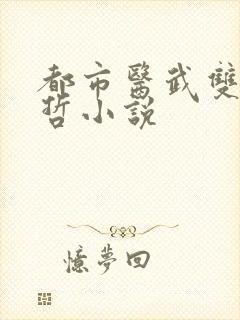 都市醫武雙
哲小說
憶夢回